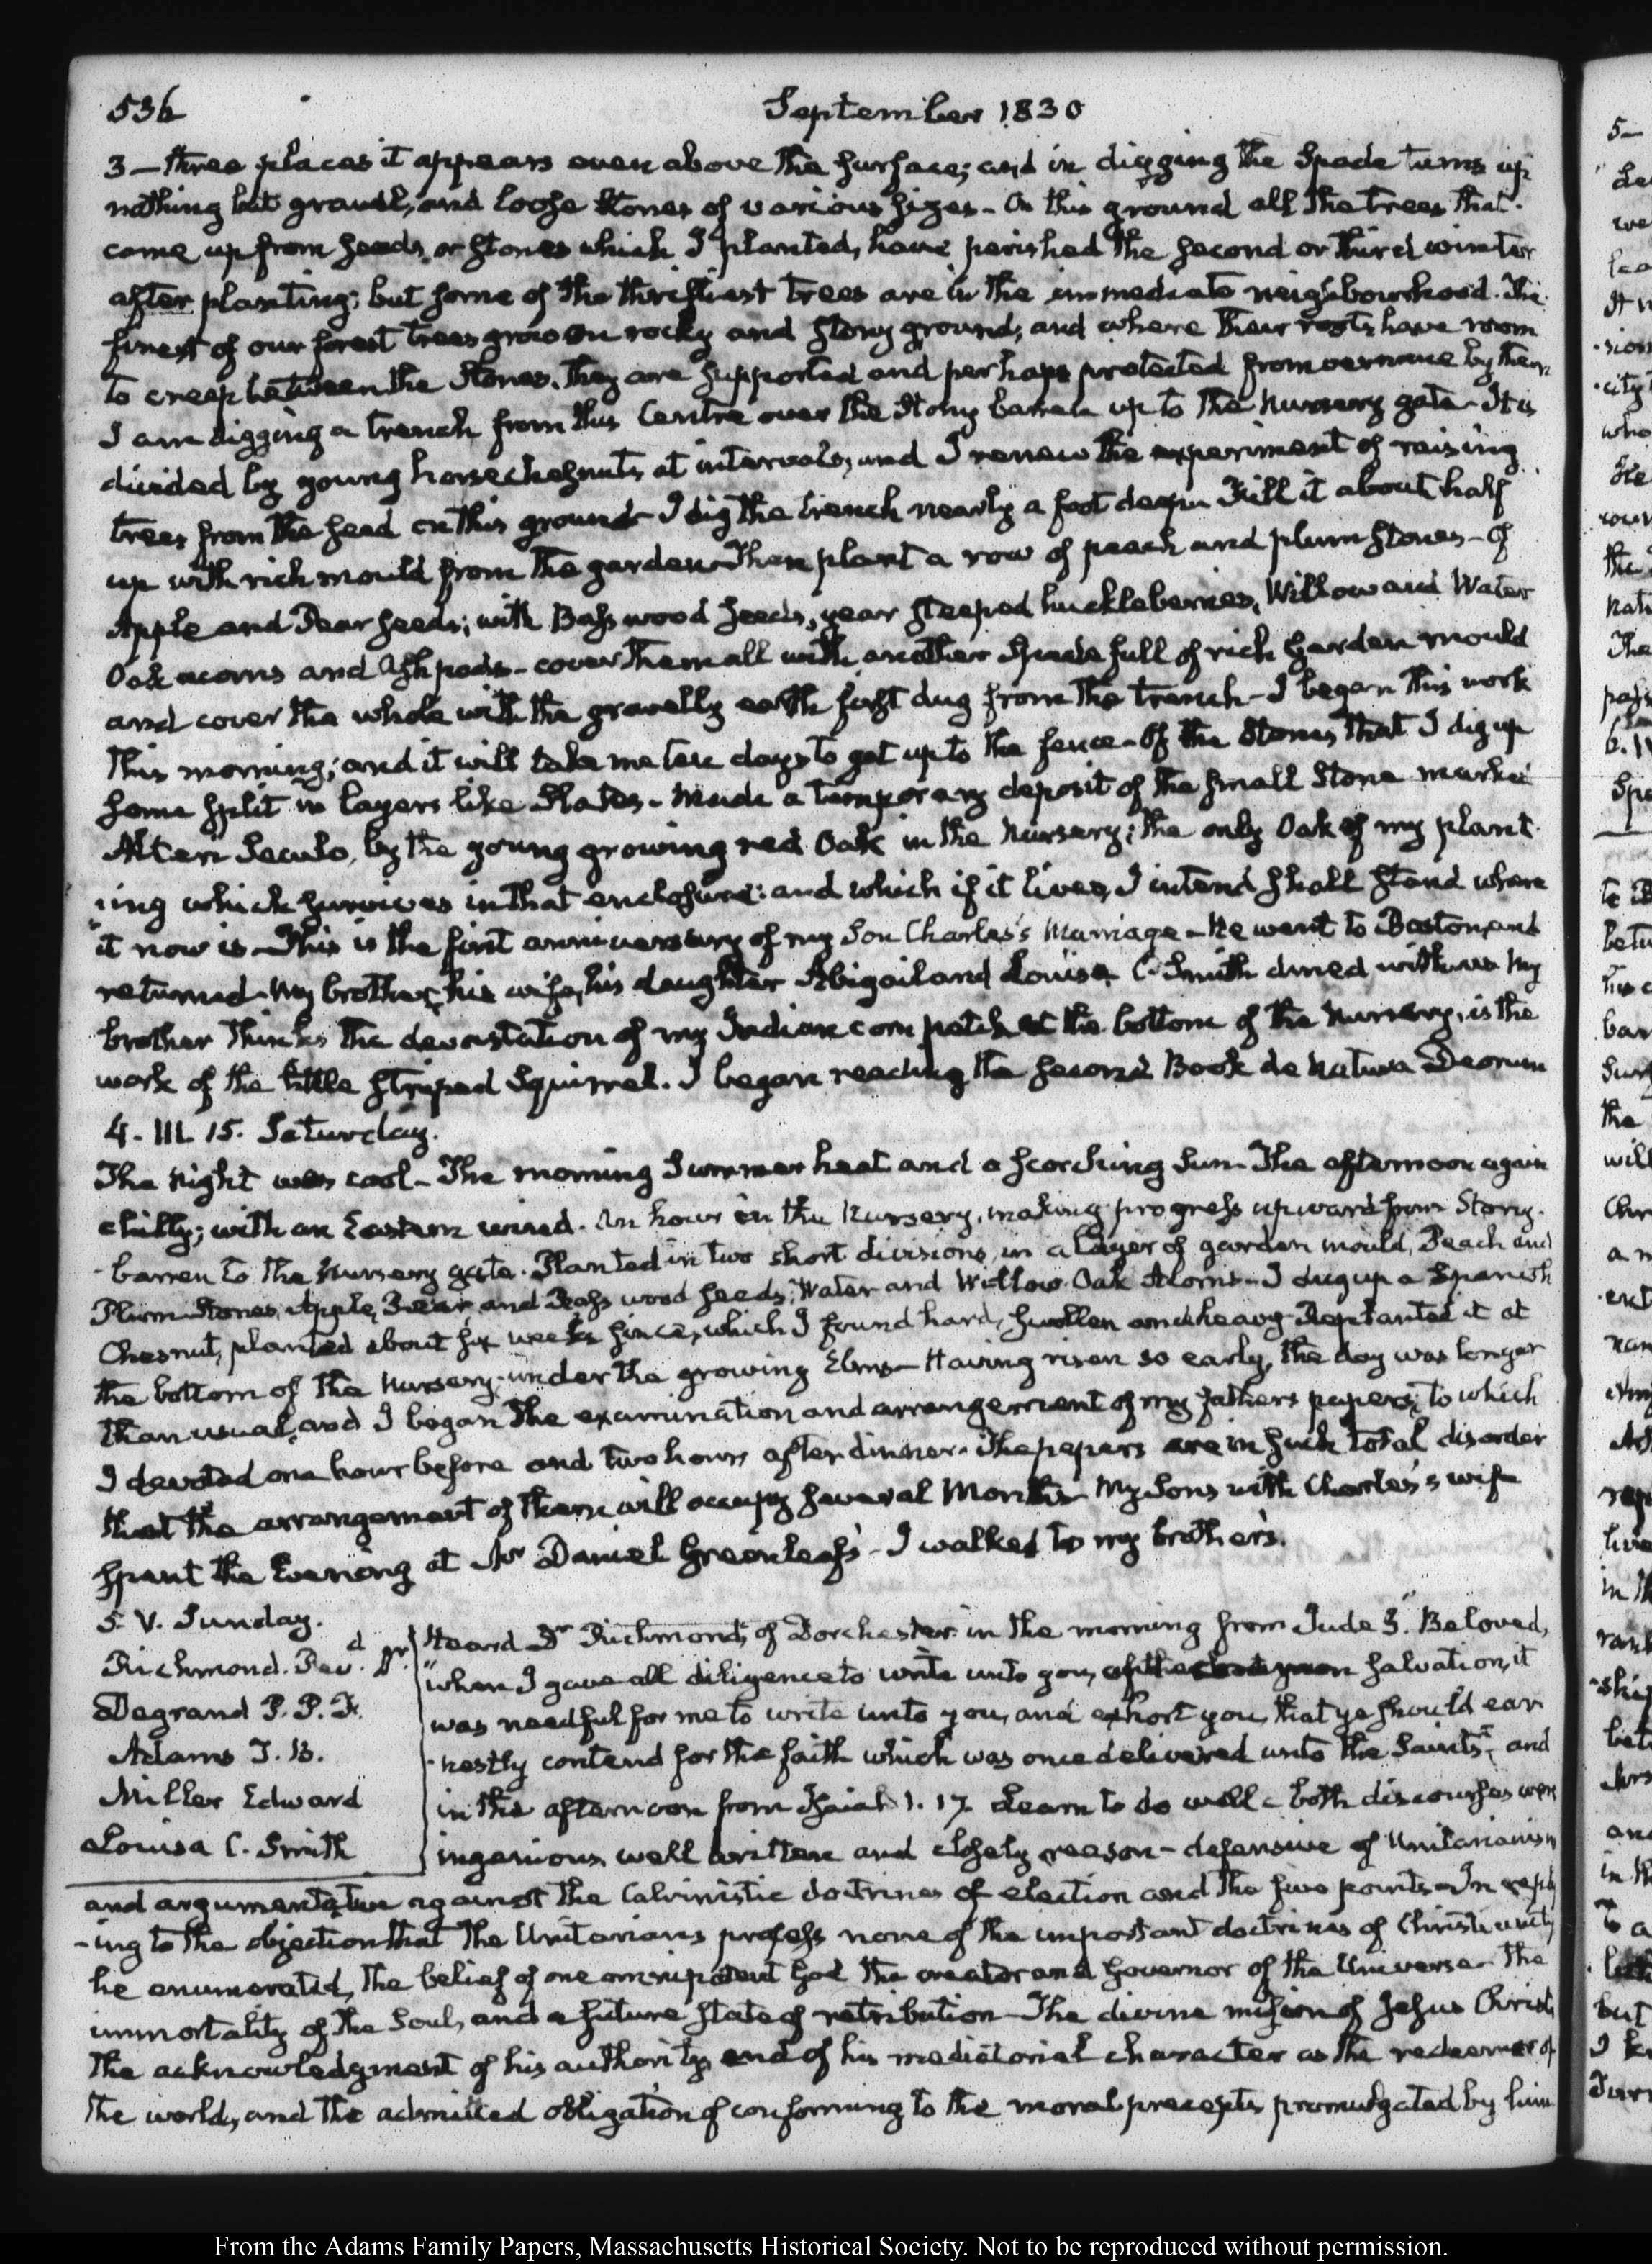 536
September 1830
3 — three places it appears even above the surface; and in digging the Spade turns up
nothing but gravel, and loose stones of various sizes – On this ground all the trees that
come up from seeds, or stones which I planted, have perished the second or third winter
after planting; but some of the thriftiest trees are in the immediate neighbourhood. The
finest of our forest trees grow on rocky and stony ground, and where their roots have room
to creep between the stones. They are supported and perhaps protected from by them
I am digging a trench from this Centre over the Stony barren up to the Nursery gate – It is
divided by young horsechesnuts at intervals, and I renew the experiment of raising
trees from the seed on this ground – I dig the trench nearly a foot deep – Fill it about half
up with rich mould from the garden – Then plant a row of peach and plum stones – of
Apple and Pear seeds; with Basswood seeds, year steeped huckleberries, Willow and Water
Oak acorns and Ash pods – cover them all with another spade full of rich Garden mould
and cover the whole with the gravelly earth first dug from the trench – I began this work
this morning; and it will take me ten days to get up to the fence – Of the Stones that I dig up
some split in layers like Slates – Made a temporary deposit of the small Stone marked
Alteri Seculo, by the young growing red Oak in the Nursery; the only Oak of my plant-
-ing which survives in that enclosure: and which if it lives, I intend shall stand where
it now is – This is the first anniversary of my Son Charles's Marriage – He went to Boston, and
returned – My brother, his wife, his daughter Abigail and Louisa C. Smith dined with us – My
brother thinks the devastation of my Indian corn patch at the bottom of the Nursery, is the
work of the little striped Squirrel. I began reading the second Book de Natura Deorum
4. III. 15. Saturday.
The Night was cool – The morning Summer heat and a scorching Sun – The afternoon again
chilly; with an Eastern wind. An hour in the Nursery, making progress upward from Stony-
-barren to the Nursery gate. Planted in two short divisions, in a layer of garden mould, Peach and
Plum Stones, Apple, Pear, and Bass wood seeds; Water and Willow Oak Acorns – I dug up a Spanish
Chesnut, planted about six weeks since, which I found hard, swollen and heavy – Replanted it at
the bottom of the Nursery; under the growing Elms – Having risen so early, the day was longer
than usual, and I began the examination and arrangement of my father's papers, to which
I devoted one hour before and two hours after dinner. The papers are in such total disorder
that the arrangement of them will occupy several Months – My Sons with Charles's wife
spent the Evening at Mr Daniel Greenleaf's – I walked to my brother's.
5. V. Sunday.
Richmond. Revd. Dr.
Degrand P. P. F.
Adams T. B.
Miller Edward
Louisa C. Smith
Heard Dr Richmond, of Dorchester in the morning from Jude 3. Beloved,
"when I gave all diligence to write unto you, of the common salvation, it
was needful for me to write unto you, and exhort you, that ye should ear-
-nestly contend for the faith which was once delivered unto the Saints", and
in the afternoon from Isaiah 1. 17. Learn to do well – both discourses were
ingenious, well written and closely reason – defensive of Unitarianism
and argumentative against the Calvinistic doctrines of election and the five points – In reply
-ing to the objection that the Unitarians profess none of the important doctrines of Christianity
he enumerated, The belief of one omnipotent God the creator and Governor of the Universe – The
immortality of the Soul, and a future state of retribution – The divine mission of Jesus Christ,
The acknowledgment of his authority, and of his mediatorial character as the redeemer of
the world, and the admitted obligation of conforming to the moral precepts promulgated by him
From the Adams Family Papers, Massachusetts Historical Society. Not to be reproduced without permission.